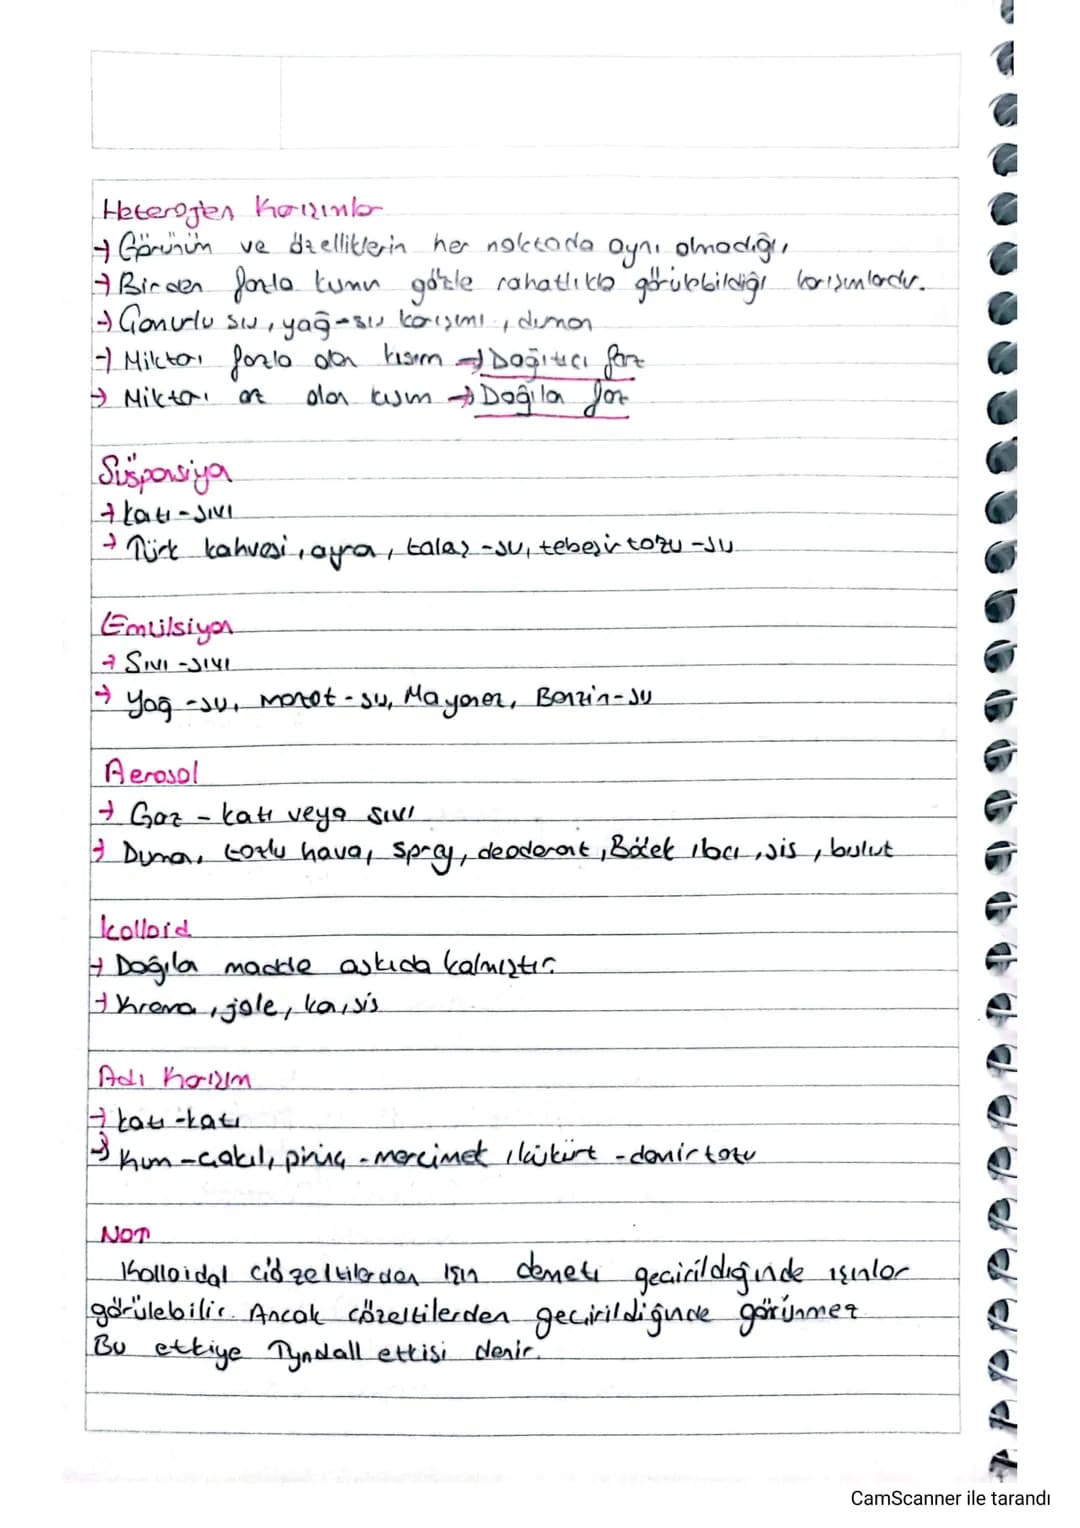 Heterojen Karışımlar
→ Görünüm ve özelliklerin her noktada aynı olmadığı,
→ Birden fazla kısmın gözle rahatlıkla görülebildiği karışımlardır.
→ Çamurlu su, yağ-su karışımı, duman
→ Miktarı fazla olan kısım → Dağıtıcı faz
→ Miktarı az olan kısım → Dağılan faz
Süspansiyon
→ Katı-sıvı
→ Türk kahvesi, ayran, talaş-su, tebeşir tozu-su
Emülsiyon
→ Sıvı-sıvı
→ Yağ-su, mazot-su, Mayonez, Benzin-su
Aerosol
→ Gaz - katı veya sıvı
→ Duman, tozlu hava, sprey, deodorant, Böcek ilacı, sis, bulut
Kolloid
→ Dağılan madde askıda kalmıştır.
→ Krema, jöle, kan, sis
Adi Karışım
→ Katı-katı
→ Kum-çakıl, pirinç-mercimek, kükürt-demir tozu
NOT:
Kolloidal çözeltilerden ışın demeti geçirildiğinde ışınlar
görülebilir. Ancak çözeltilerden geçirildiğinde görünmez.
Bu etkiye Tyndall etkisi denir.
CamScanner ile tarandı